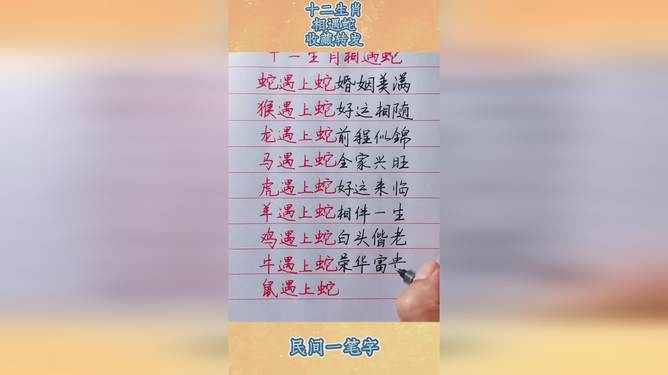 十二生肖
相遇蛇
收藏转发
十二生肖相遇蛇
蛇遇上蛇婚姻美满
猴遇上蛇好运相随
龙遇上蛇前程似锦
马遇上蛇全家兴旺
虎遇上蛇好运来临
羊遇上蛇相伴一生
鸡遇上蛇白头偕老
牛遇上蛇荣华富贵
鼠遇上蛇
民间一笔字